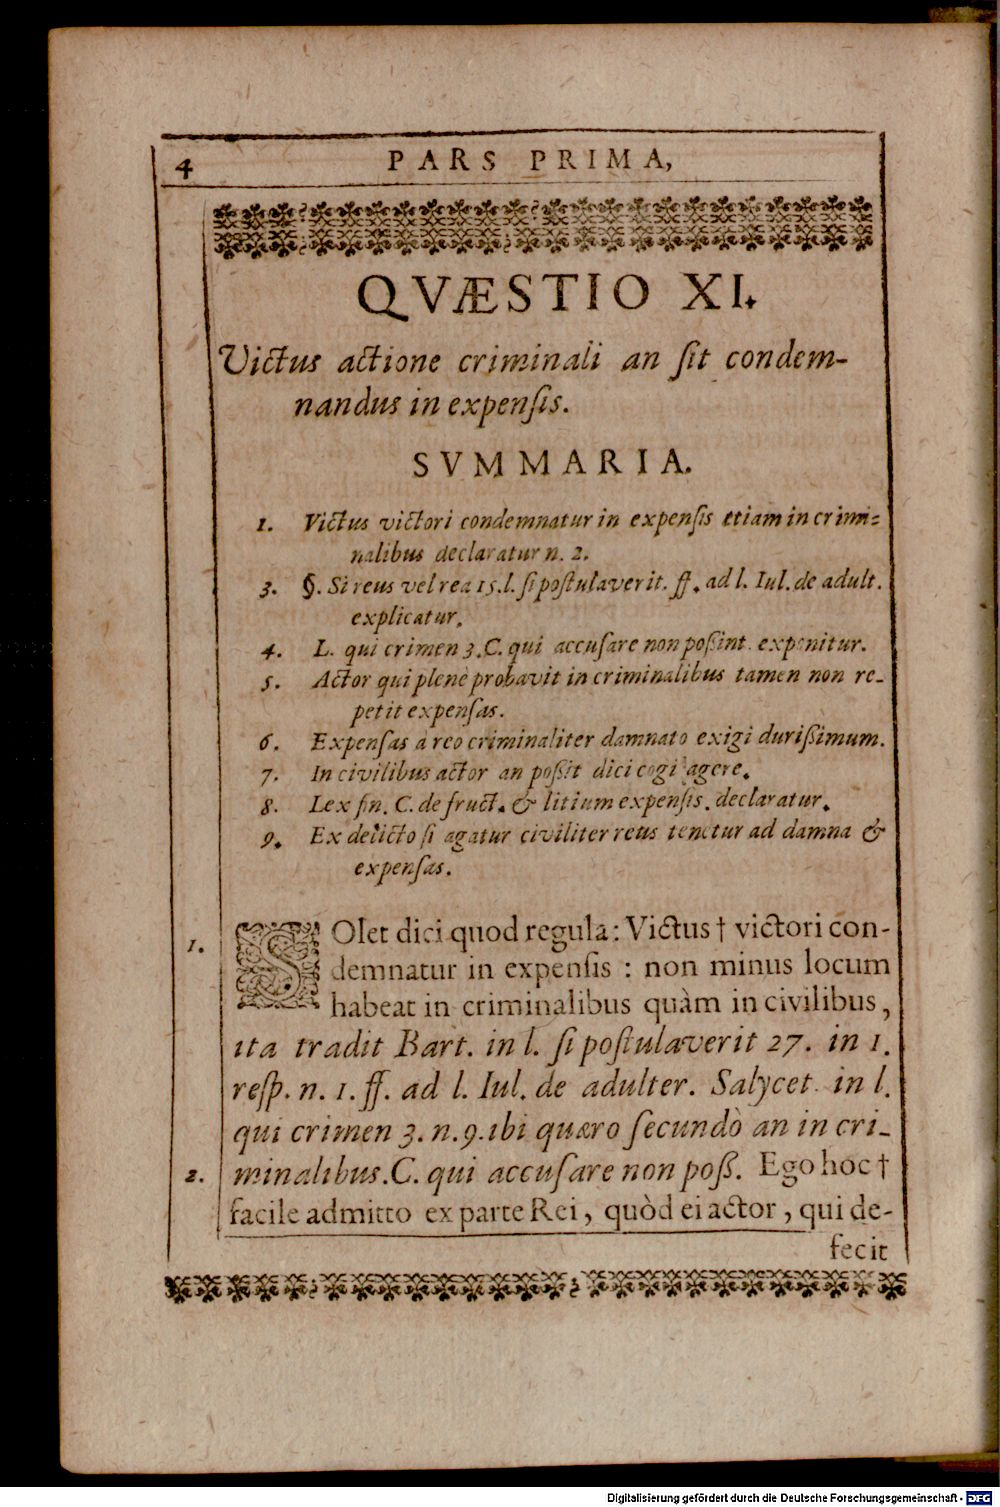 4 PARS PRIMA,
QVÆSTIO XI.
Victus actione criminali an ſit condem-
nandus in expenſis.
SVMMARIA.
1. Victus victori condemnatur in expenſis etiam in crimi=
nalibus declaratur n. 2.
3. §. Si reus vel rea 15. l. ſi poſtulaverit. ff. ad l. Iul. de adult.
explicatur.
4. L. qui crimen 3. C. qui accuſare non poßint. exponitur.
5. Actor qui plenè probavit in criminalibus tamen non re-
petit expenſas.
6. Expenſas à reo criminaliter damnato exigi durißimum.
7. In civilibus actor an poßit dici cogi agere.
8. Lex fin. C. de fruct. & litium expenſis. declaratur.
9. Ex delicto ſi agatur civiliter reus tenetur ad damna &
expenſas.
1. SOlet dici quod regula: Victus † victori con-
demnatur in expenſis : non minus locum
habeat in criminalibus quàm in civilibus,
ita tradit Bart. in l. ſi poſtulaverit 27. in 1.
reſp. n. 1. ff. ad l. Iul. de adulter. Salycet. in l.
qui crimen 3. n. 9. ibi quæro ſecundò an in cri-
2. minalibus. C. qui accuſare non poß. Ego hoc †
facile admitto ex parte Rei, quòd ei actor, qui de-
fecit
Digitalisierung gefördert durch die Deutsche Forschungsgemeinschaft - DFG